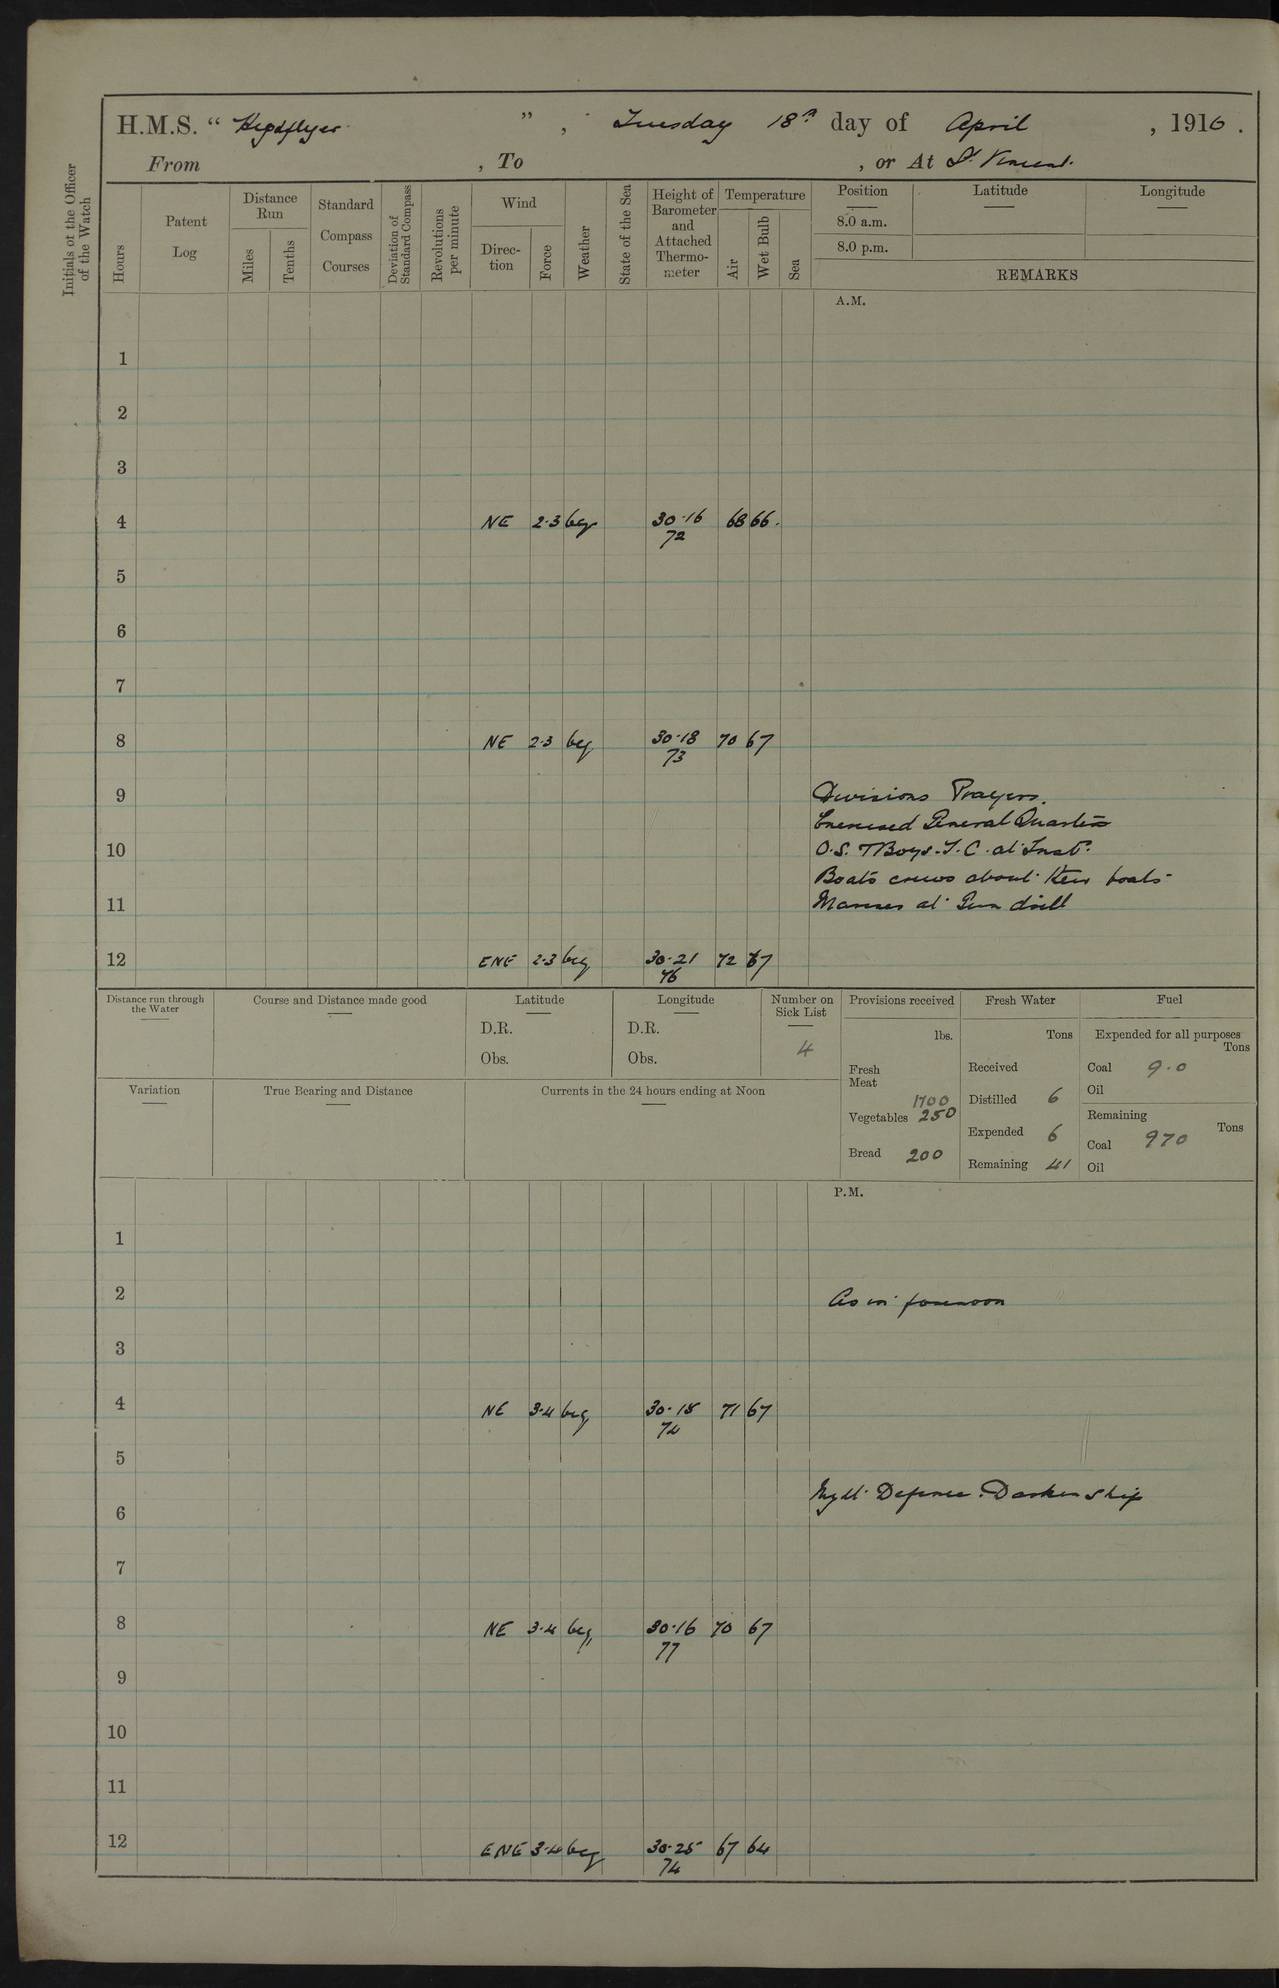 H.M.S. “ Highflyer ” , Tuesday 18th day of April , 1916 .
From , To , or At St. Vincent.
Initials of the Officer of the Watch
Hours
Patent Log
Distance Run
Miles
Tenths
Standard Compass Courses
Deviation of Standard Compass
Revolutions per minute
Wind
Direction
Force
Weather
State of the Sea
Height of Barometer and Attached Thermometer
Temperature
Air
Wet Bulb
Sea
Position Latitude Longitude
8.0 a.m.
8.0 p.m.
REMARKS
A.M.
1
2
3
4 NE 2·3 bcg 30·16 68 66.
72
5
6
7
8 NE 2·3 bcg 30·18 70 67
73
9 Divisions Prayers.
Exercised General Quarters
10 O.S. & Boys. T.C. at Inst.
Boats crews about their boats
11 Marines at Gun drill
12 ENE 2·3 bcg 30·21 72 67
76
Distance run through the Water
Course and Distance made good
Latitude
D.R.
Obs.
Longitude
D.R.
Obs.
Number on Sick List
4
Variation
True Bearing and Distance
Currents in the 24 hours ending at Noon
Provisions received
lbs.
Fresh Meat 1700
Vegetables 250
Bread 200
Fresh Water
Tons
Received
Distilled 6
Expended 6
Remaining 41
Fuel
Expended for all purposes
Tons
Coal 9·0
Oil
Remaining
Tons
Coal 970
Oil
P.M.
1
2 As in forenoon
3
4 NE 3·4 bcg 30·18 71 67
74
5
Night Defence. Darken ship
6
7
8 NE 3·4 bcg 30·16 70 67
77
9
10
11
12 ENE 3·4 bcg 30·25 67 64
74